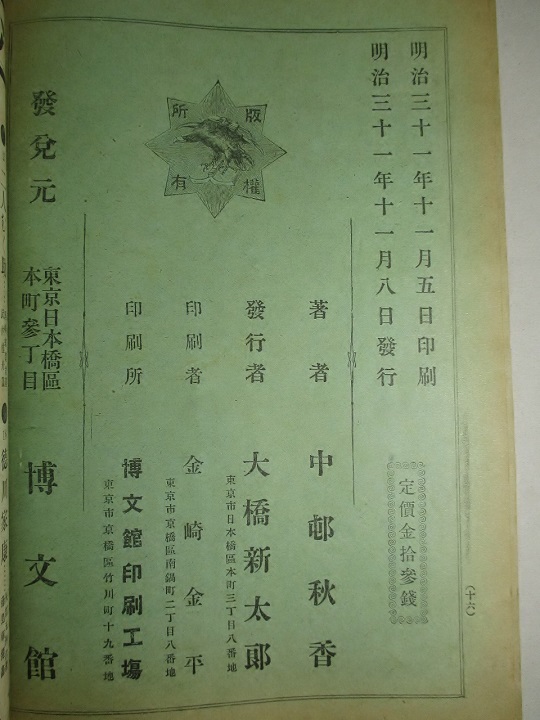 明治三十一年十一月五日印刷
明治三十一年十一月八日發行
定價金拾參錢
著者 中邨秋香
發行者 大橋新太郎
東京市日本橋區本町三丁目八番地
印刷者 金崎金平
東京市京橋區南鍋町二丁目八番地
印刷所 博文館印刷工場
東京市京橋區竹川町十九番地
版權所有
發兌元 東京日本橋區本町參丁目 博文館
(十六)
德川家康